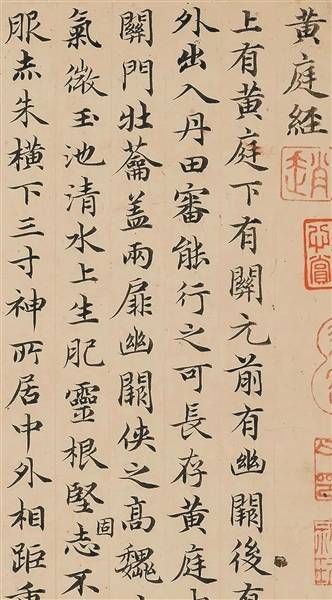 黃庭經
上有黃庭下有關元前有幽闕後有
外出入丹田審能行之可長存黃庭
關門壯蘥蓋兩扉幽闕俠之高魏
氣微玉池清水上生肥靈根堅固志不
服赤朱橫下三寸神所居中外相距重